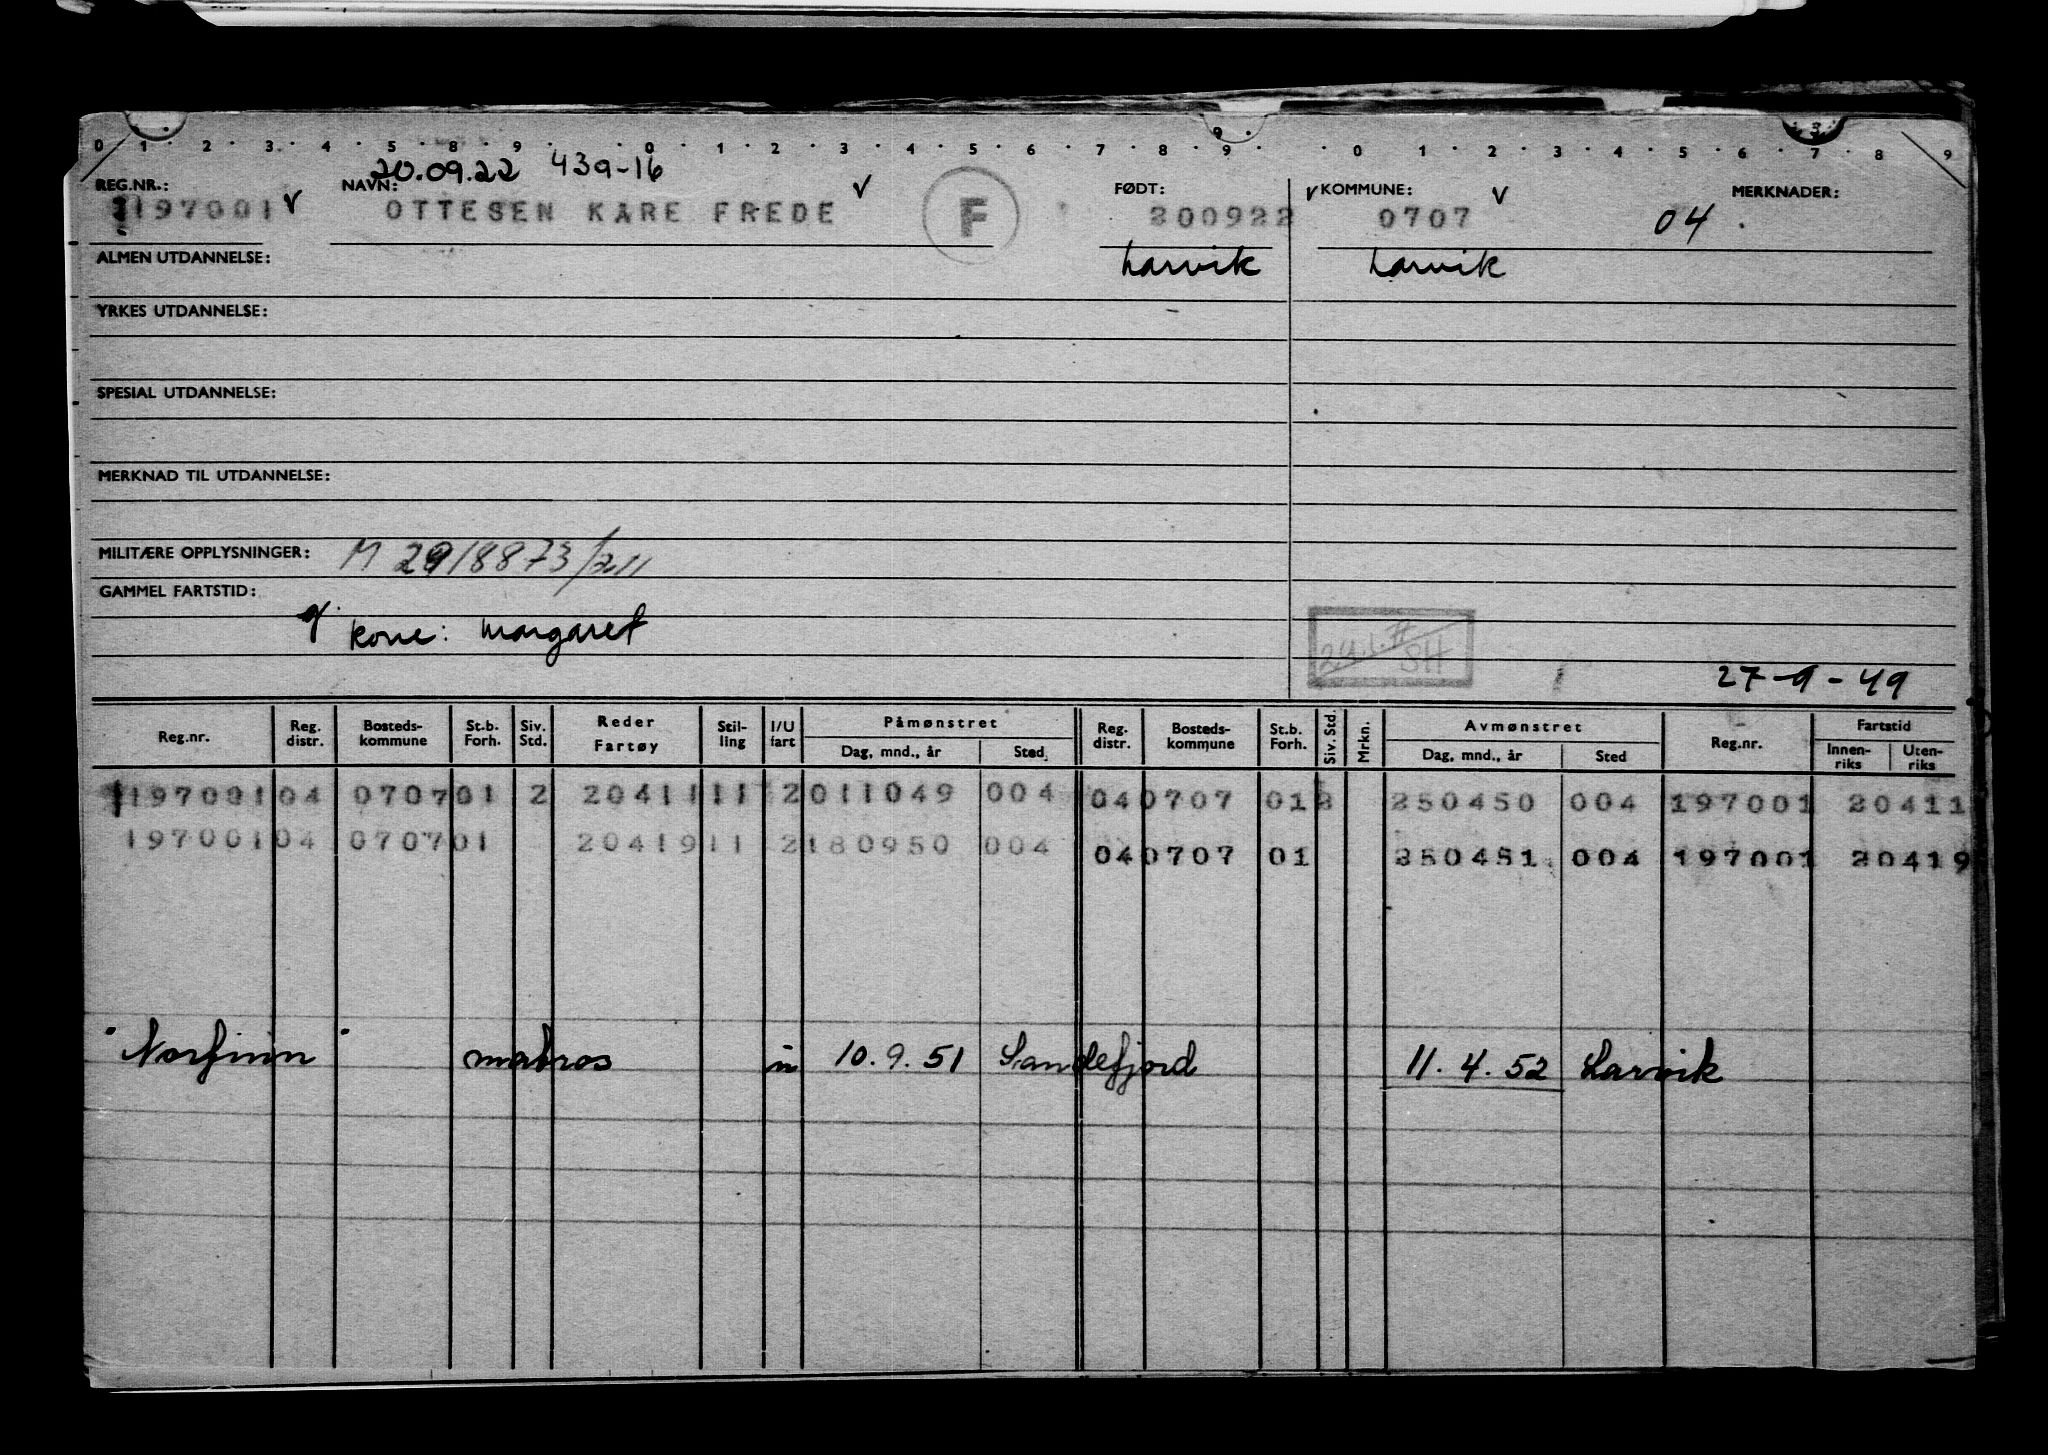 0 1 2 3 4 5 8 9 0 1 2 3 4 5 6 7 8 9 0 1 2 3 4 5 6 7 8 9
20.09.22 439-16
REG.NR.: NAVN: FØDT: KOMMUNE: MERKNADER:
197001 OTTESEN KARE FREDE F 200922 0707 04
ALMEN UTDANNELSE: Larvik Larvik
YRKES UTDANNELSE:
SPESIAL UTDANNELSE:
MERKNAD TIL UTDANNELSE:
MILITÆRE OPPLYSNINGER: M 2918873/2.11
GAMMEL FARTSTID:
Kone: Margaret
SH
27-9-49
Reg.nr. Reg. distr. Bosteds-kommune St.b. Forh. Siv. Std. Reder Fartøy Stil-ling I/U fart Påmønstret Dag, mnd., år Sted Reg. distr. Bosteds-kommune St.b. Forh. Siv. Std. Mrkn. Avmønstret Dag, mnd., år Sted Reg.nr. Fartstid Innen-riks Uten-riks
197001 04 0707 01 2 20411 11 2 011049 004 04 0707 01 2 250450 004 197001 20411
197001 04 0707 01 20419 11 2 180950 004 04 0707 01 250451 004 197001 20419
"Norfinn" matros u 10.9.51 Sandefjord 11.4.52 Larvik